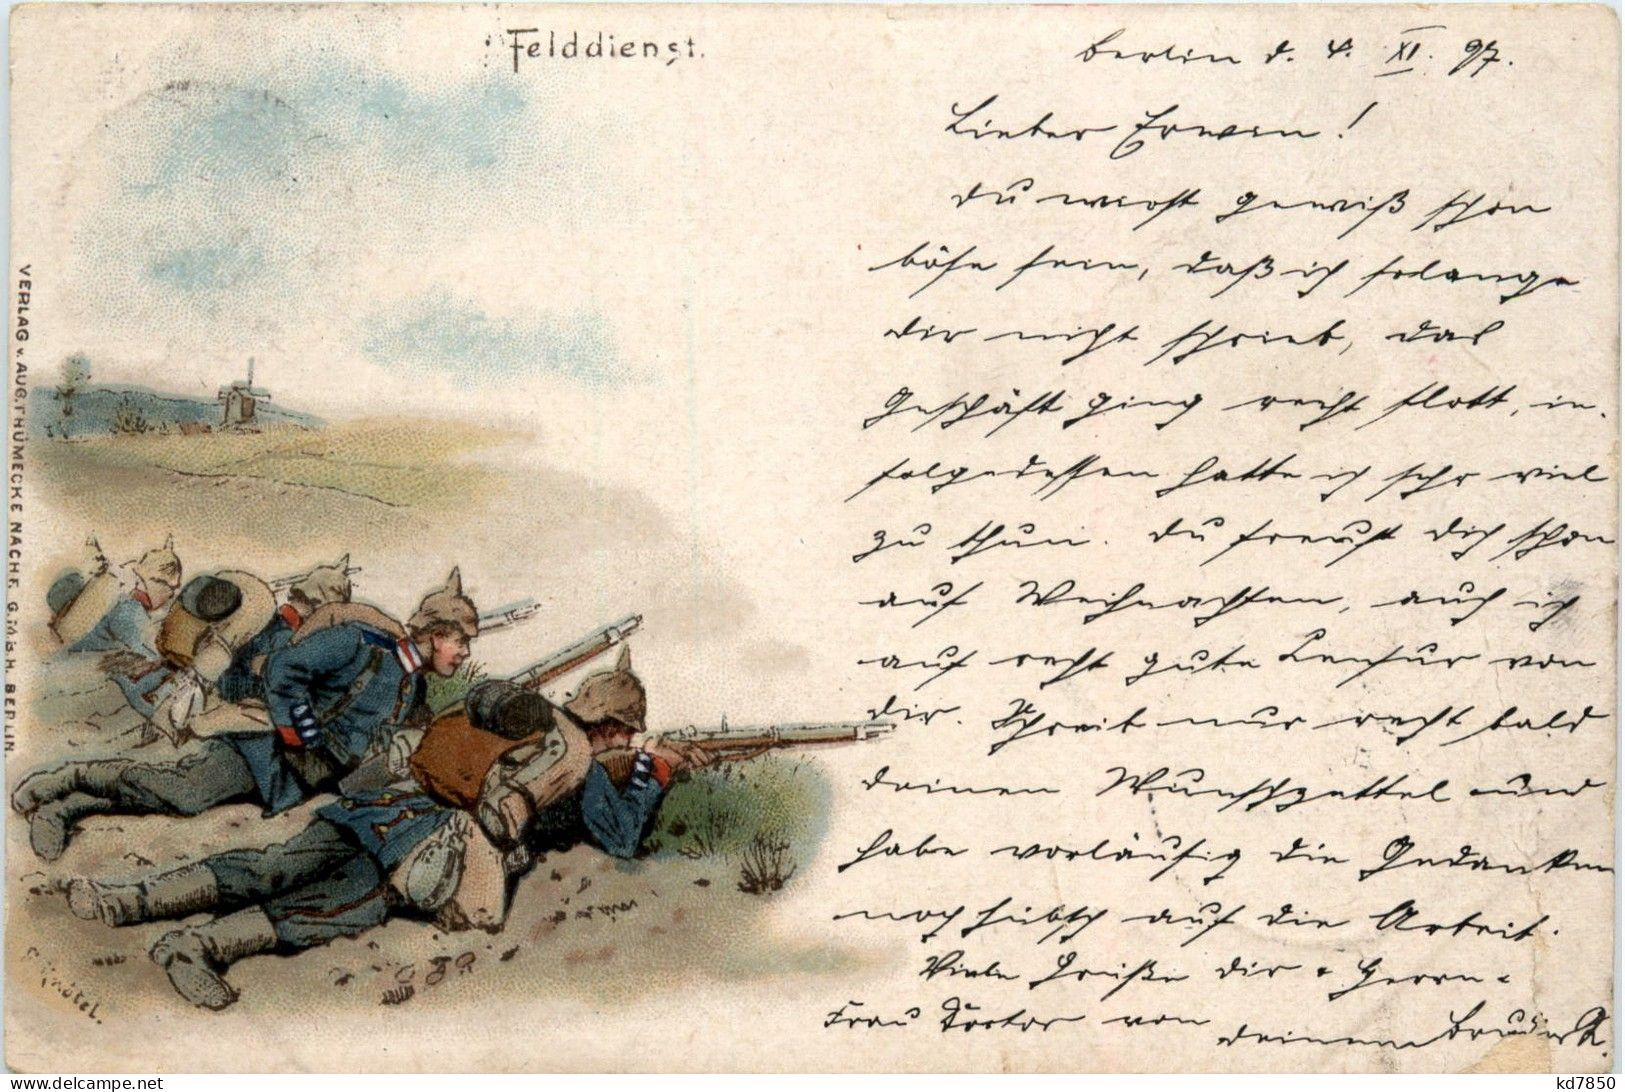 Felddienst.
Berlin d. 4. XI. 97.
Lieber Erwin!
Du wirst gewiß schon
böse sein, daß ich solange
dir nicht schrieb, das
Geschäft ging recht flott, in-
folgedessen hatte ich sehr viel
zu thun. Du freust dich schon
auf Weihnachten, auch ich
auf recht gute Censur von
dir. Schreib nur recht bald
deinen Wunschzettel und
habe vorläufig die Gedanken
noch hübsch auf die Arbeit.
Viele Grüße dir, Herrn
Frau Doctor von deinem Bruder R.
VERLAG v. AUG. THÜMECKE NACHF. G.m.b.H. BERLIN.
Knötel.
kd7850